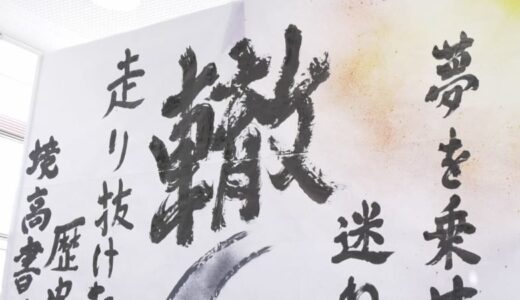 夢を乗せ
迷
轍
走り抜けた
歴史
境高書